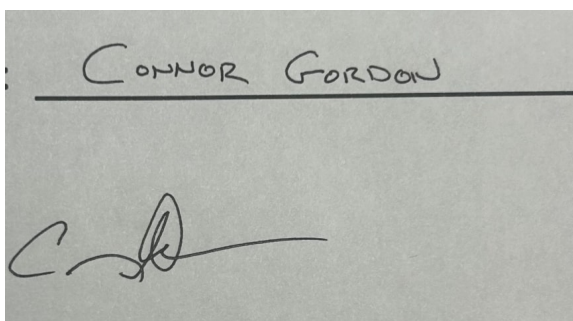 : CONNOR GORDON